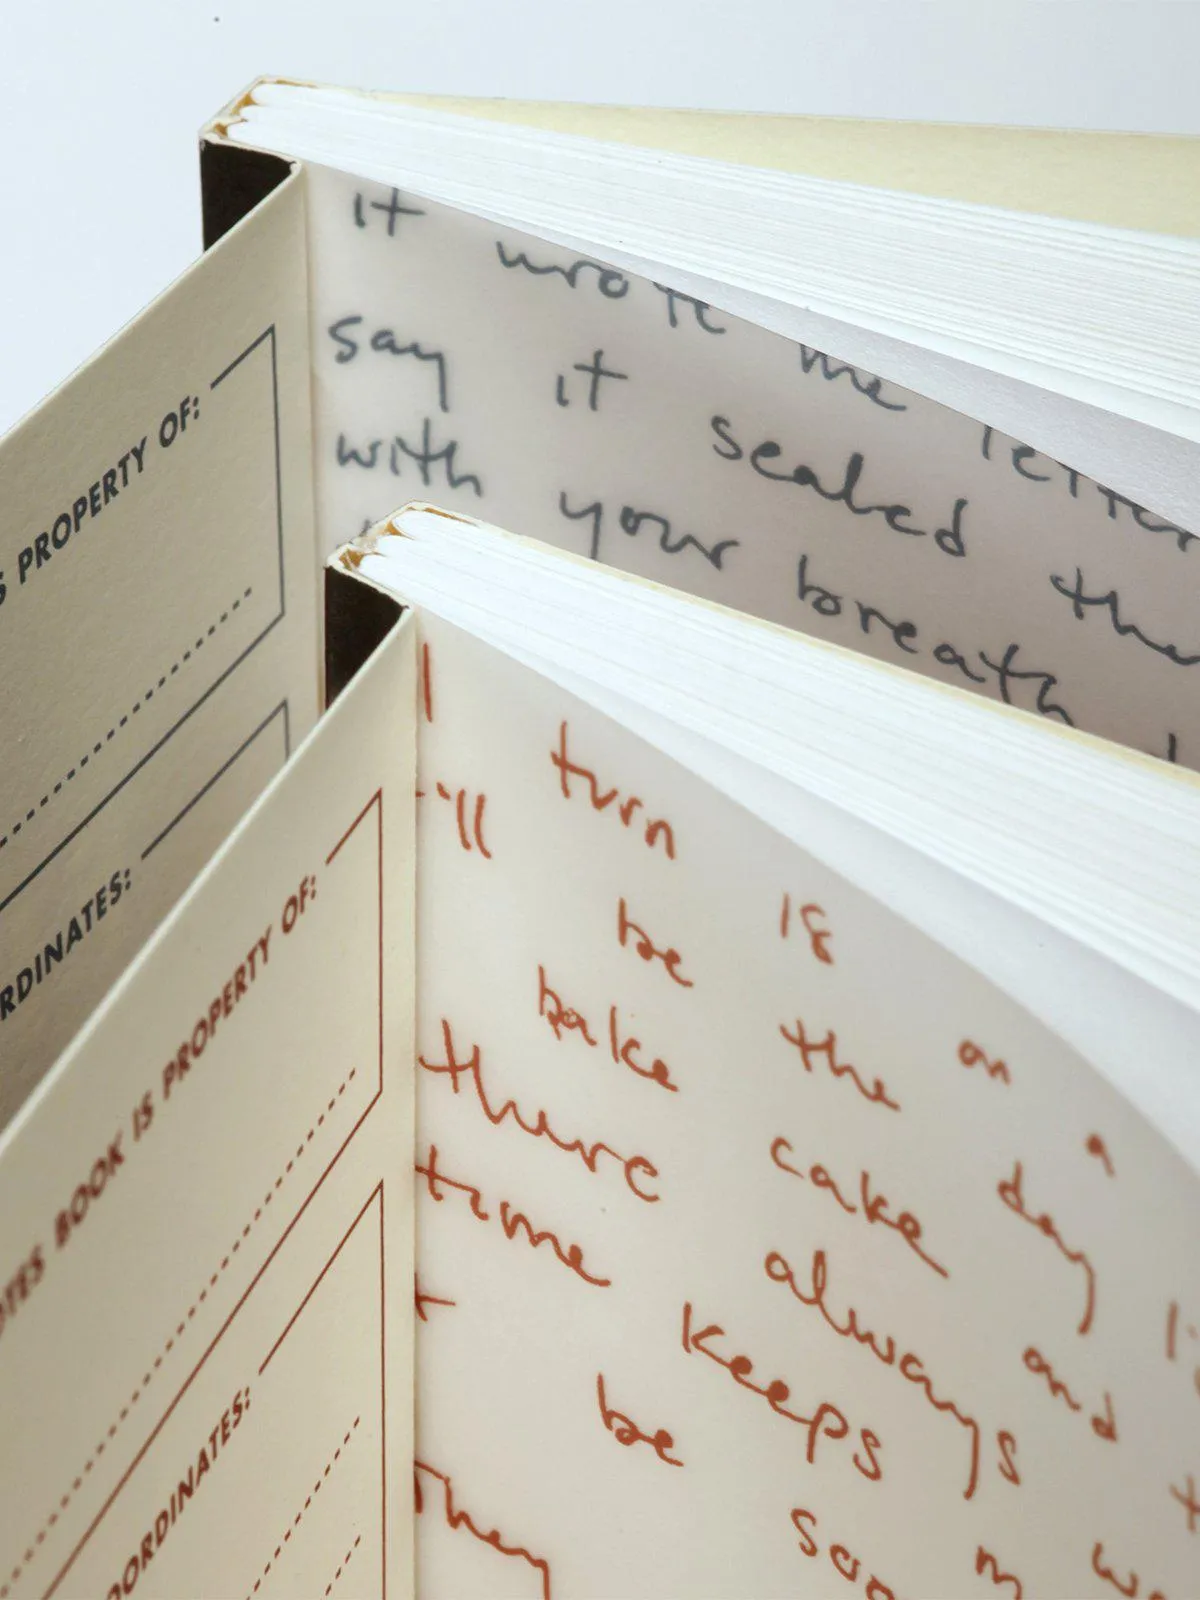 PROPERTY OF:
RDINATES:
it wrote me letter
say it sealed the
with your breath
BOOK IS PROPERTY OF:
OORDINATES:
I turn 18 on a day
'll be the
bake cake and
there always
time keeps
be
They